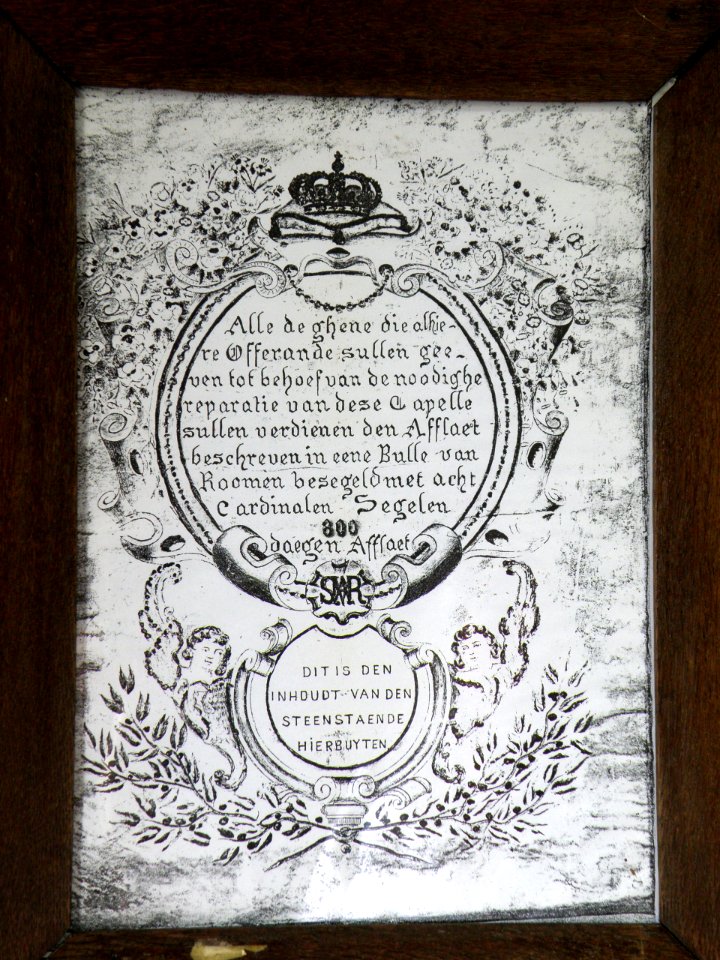 Alle de ghene die alhie-
re Offerande sullen gee-
ven tot behoef van de noodighe
reparatie van dese Capelle
sullen verdienen den Afflaet
beschreven in eene Bulle van
Roomen besegeld met acht
Cardinalen Segelen
300
daegen Afflaet
DIT IS DEN
INHOUDT VAN DEN
STEENSTAENDE
HIERBUYTEN